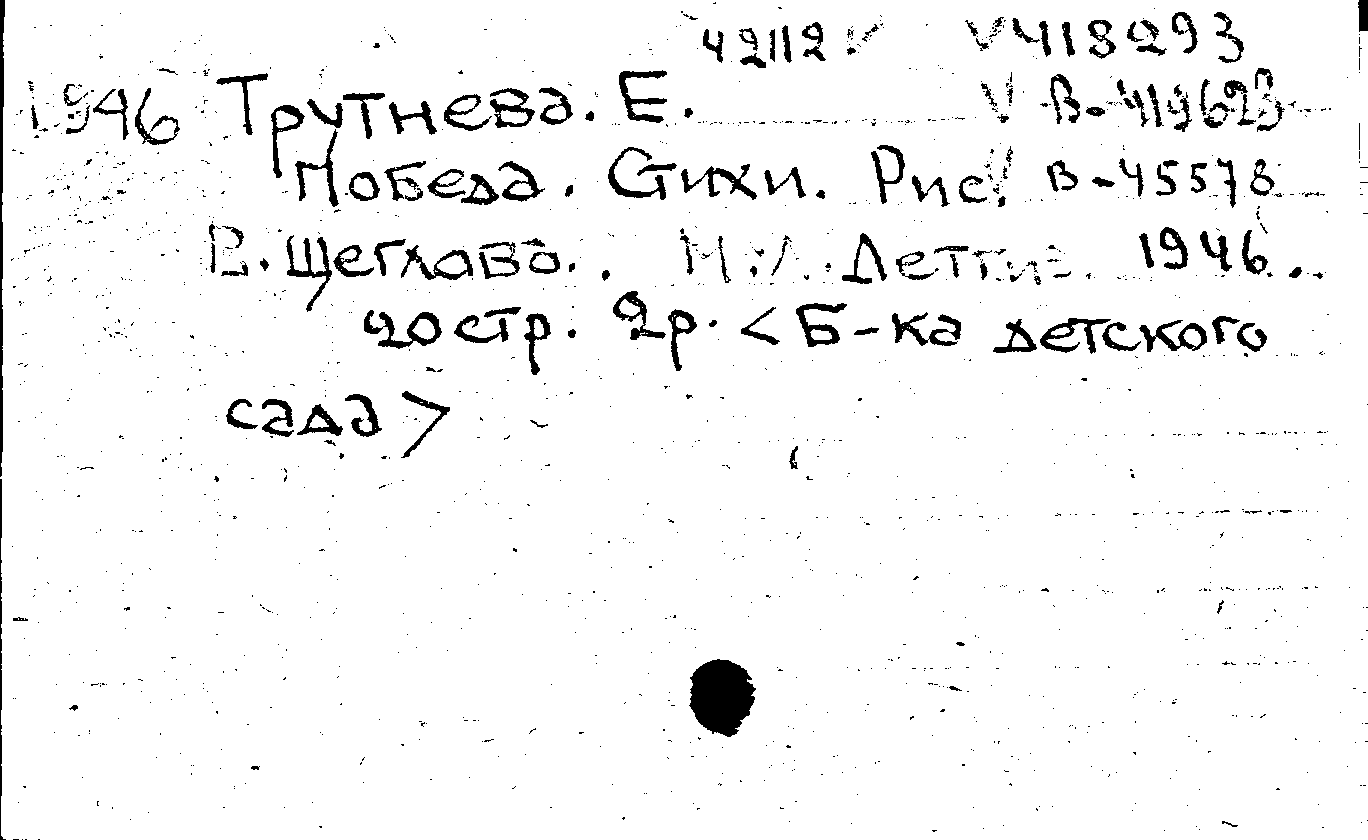 42112 V V418293
1946 Трутнева. Е. V В-419623
Победа. Стихи. Рис. V В-45578
В. Щеглова.. М.;Л. Детгиз. 1946.
20 стр. 2р. <Б-ка детского
сада>